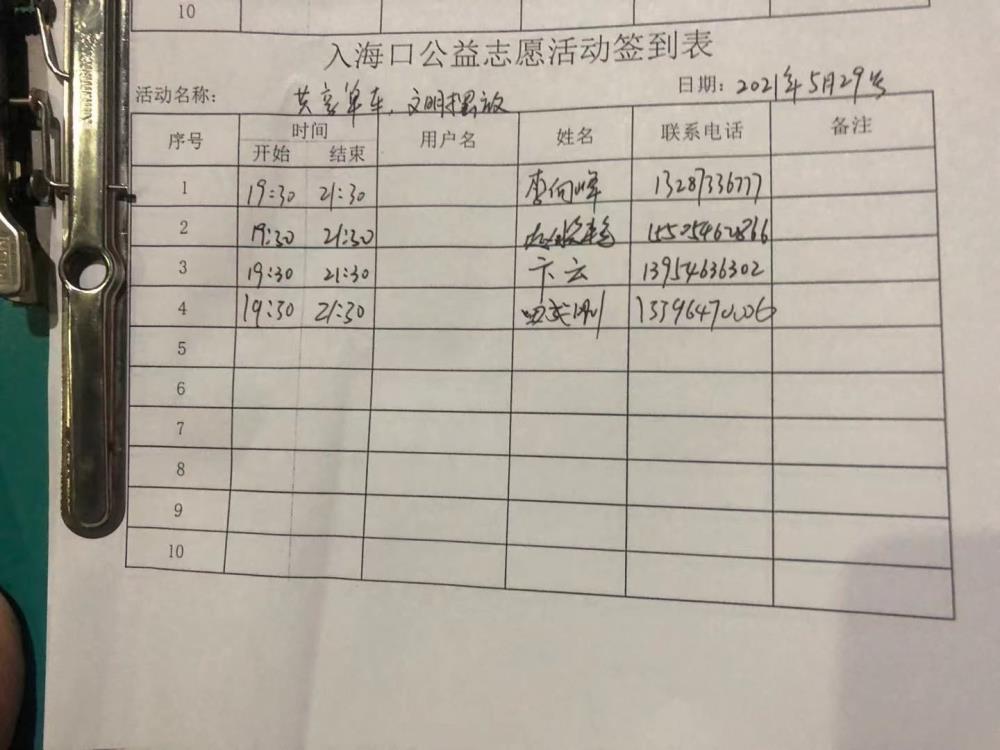 10
入海口公益志愿活动签到表
活动名称: 共享单车,文明摆放 日期: 2021年5月29号
序号 时间 用户名 姓名 联系电话 备注
开始 结束
1 19:30 21:30 李向峰 13287336777
2 19:30 21:30 15505462866
3 19:30 21:30 卞云 13954636302
4 19:30 21:30
5
6
7
8
9
10